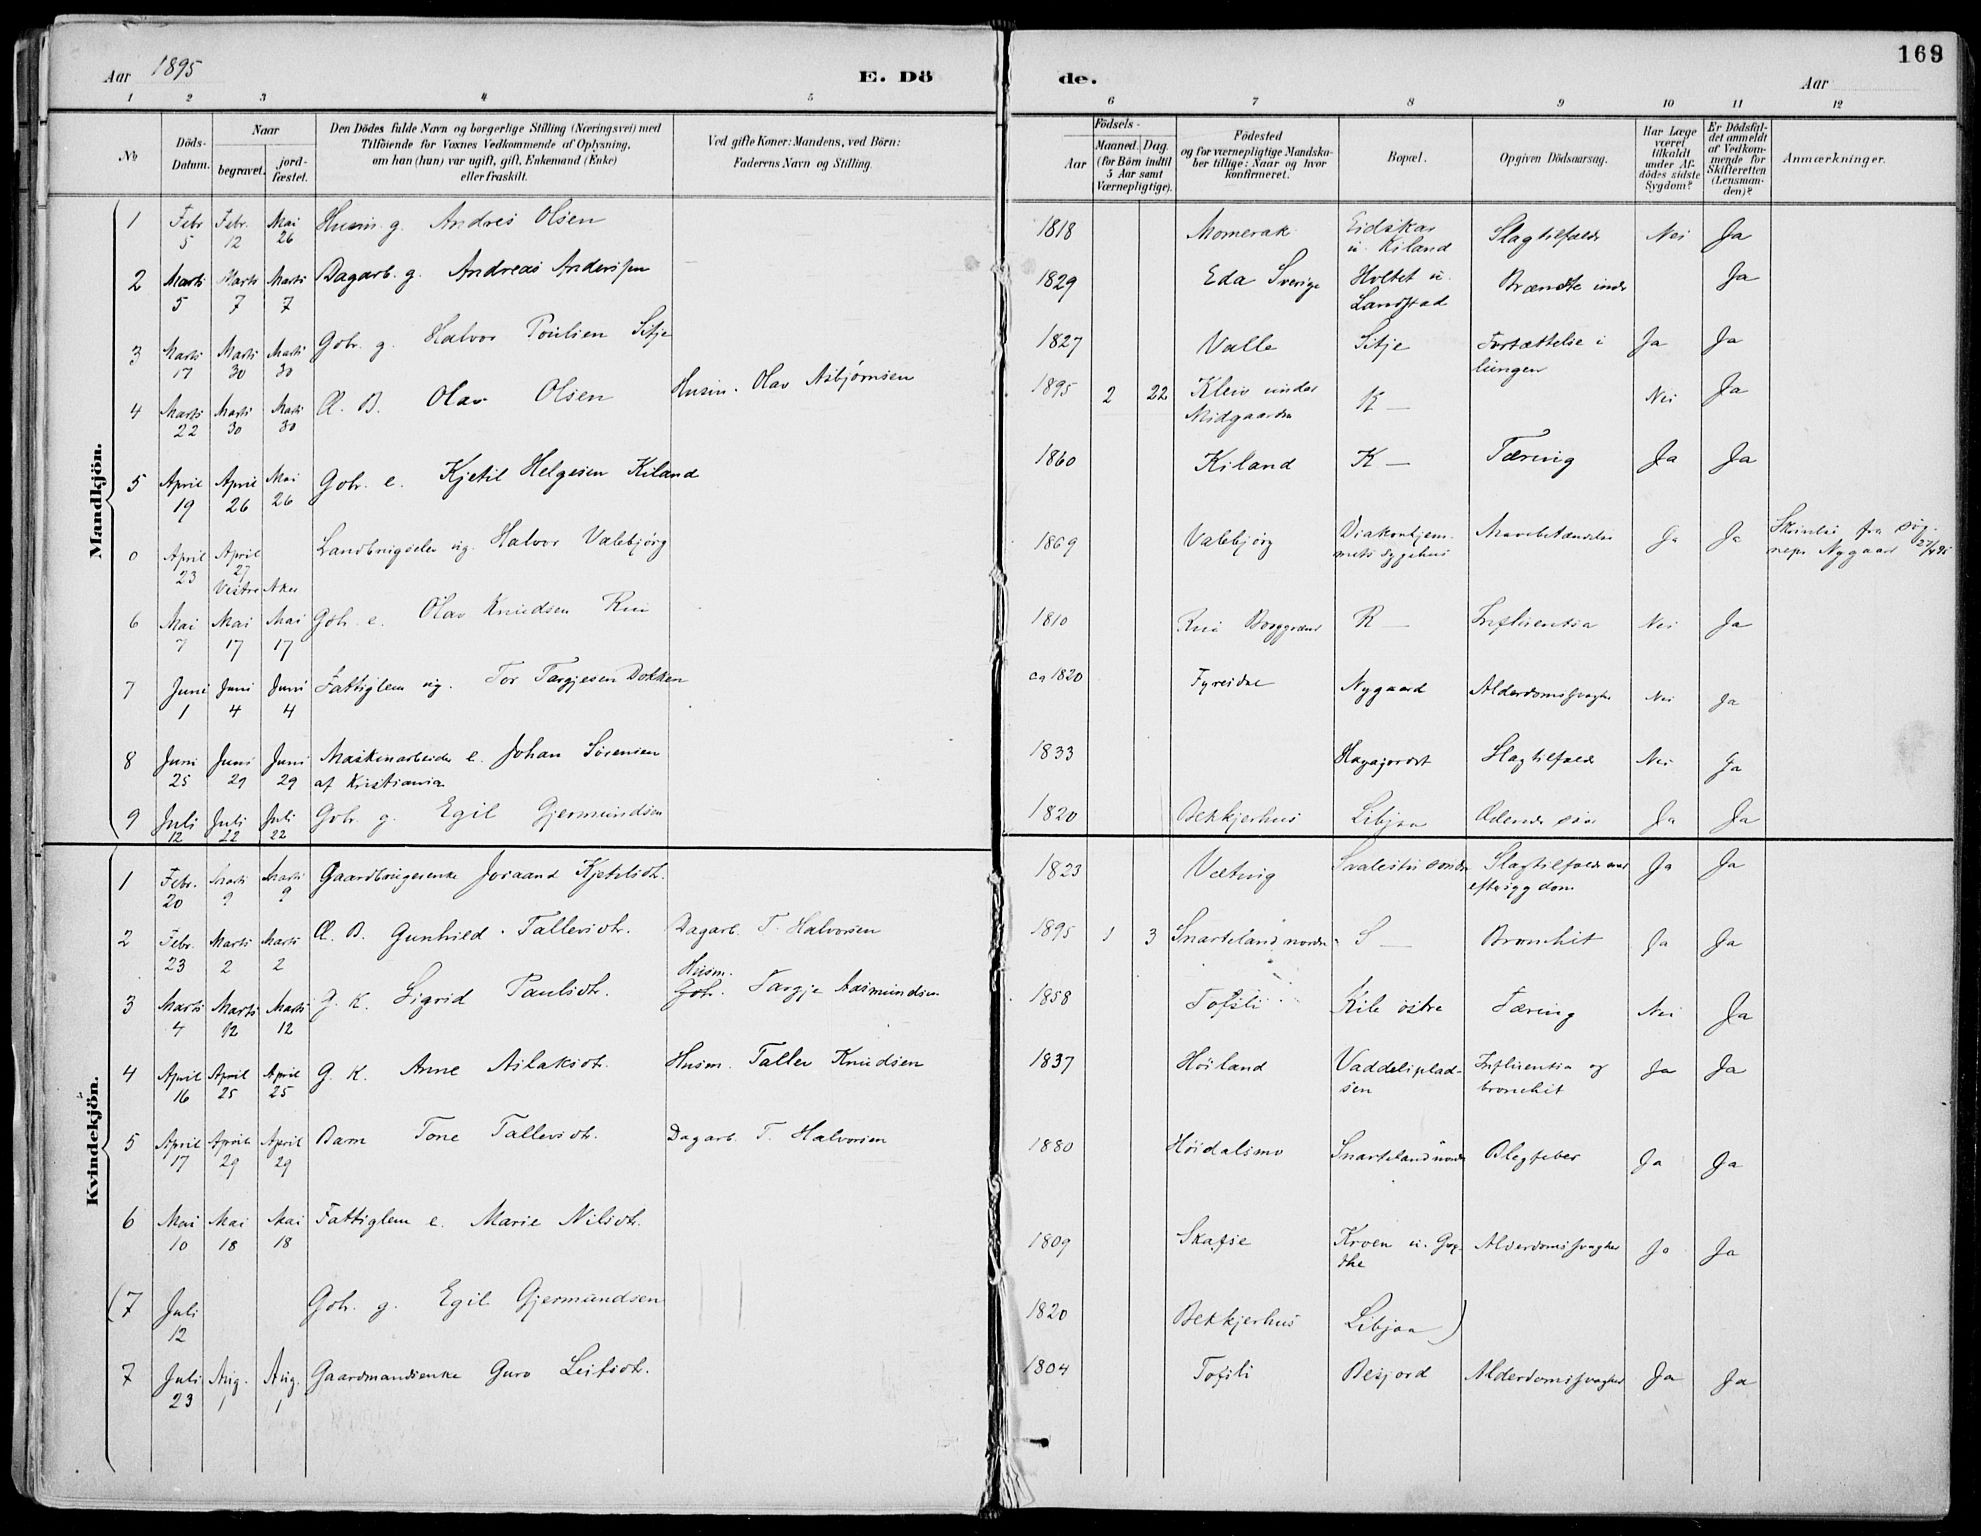 Aar 1895
E. Dö
de.
Aar
169
1 2 3 4 5
6 7 8 9 10 11 12
No
Döds-Datum.
Naar
begravet.
jord-fæstet.
Den Dödes fulde Navn og borgerlige Stilling (Næringsvei) med
Tilföiende for Voxnes Vedkommende af Oplysning,
om han (hun) var ugift, gift, Enkemand (Enke)
eller fraskilt.
Ved gifte Koner: Mandens, ved Börn:
Faderens Navn og Stilling.
Födsels-
Aar
Maaned. Dag.
(for Börn indtil
5 Aar samt
Værnepligtige).
Födested
og for værnepligtige Mandska-
ber tillige: Naar og hvor
konfirmeret.
Bopæl.
Opgiven Dödsaarsag.
Har Læge
været
tilkaldt
under Af-
dödes sidste
Sygdom?
Er Dödsfal-
det anmeldt
af Vedkom-
mende for
Skifteretten
(Lensman-
den)?
Anmærkninger.
Mandkjön.
1 Febr 5 Febr. 12 Mai 26 Husm. g. Andres Olsen 1818 Momerak Eidskar u. Kiland Slagtilfælde Nei Ja
2 Marts 5 Marts 7 Marts 7 Dagarb. g. Andreas Andersen 1829 Eda Sverige Holtet u. Landstad Brændte inde Ja
3 Marts 17 Marts 30 Marts 30 Gbr. g. Halvor Poulsen Sitje 1827 Valle Sitje Fortættelse i lungen Ja Ja
4 Marts 22 Marts 30 Marts 30 Æ. B. Olav Olsen Husm. Olav Asbjørnsen 1895 2 22 Kleiv under Midgaarden K — Nei Ja
5 April 19 April 26 Mai 26 Gbr. e. Kjetil Helgesen Kiland 1860 Kiland K — Tæring Ja Ja
0 April 23 April 27 Vestre Aker Landbrugselev ug. Halvor Valebjørg 1869 Valebjørg Diakonhjemmets sygehus Ja Ja Skrivelse fra sognepr Nygaard 27/4 95
6 Mai 7 Mai 17 Mai 17 Gbr. e. Olav Knudsen Rui 1810 Rui R — Influentsa Nei Ja
7 Juni 1 Juni 4 Juni 4 Fattiglem ug. Tor Targjesen Dokken ca 1820 Fyreisdal Nygaard Alderdomssvaghed Nei Ja
8 Juni 25 Juni 29 Juni 29 Maskinarbeider e. Johan Sörensen af Kristiania 1833 Slagtilfælde Nei Ja
9 Juli 12 Juli 22 Juli 22 Gbr. g. Egil Gjermundsen 1820 Bekkjerhus Libjaa Ja Ja
Kvindekjön.
1 Febr. 20 Marts 9 Marts 9 Gaardbrugerenke Joraand Kjetilsdtr. 1823 Vætvig Slagtilfælde Ja Ja
2 Febr. 23 Marts 2 Marts 2 Æ. B. Gunhild Tallevsdtr. Dagarb. T. Halvorsen 1895 1 3 Snarteland nordre S — Bronchit Ja Ja
3 Marts 4 Marts 12 Marts 12 G. K. Sigrid Paulsdtr. Husm. Gbr. Targje Aasmundsen 1858 Tofsli Kile østre Tæring Nei Ja
4 April 16 April 25 April 25 G. K. Anne Aslaksdtr. Husm. Tallev Knudsen 1837 Höiland Vaddelspladsen Influentsa og bronchit Ja Ja
5 April 17 April 29 April 29 Barn Tone Tallevsdtr. Dagarb. T. Halvorsen 1880 Höidalsmo Snarteland nordre Blegfeber Ja Ja
6 Mai 10 Mai 18 Mai 18 Fattiglem e. Marie Nilsdtr. 1809 Skafse Kroen Alderdomssvaghed Ja Ja
(7 Juli 12 Gbr. g. Egil Gjermundsen 1820 Bekkjerhus Libjaa)
7 Juli 23 Aug. 1 Aug. 1 Gaardmandsenke Guro Leifsdtr. 1804 Tofsli Besjord Alderdomssvaghed Ja Ja